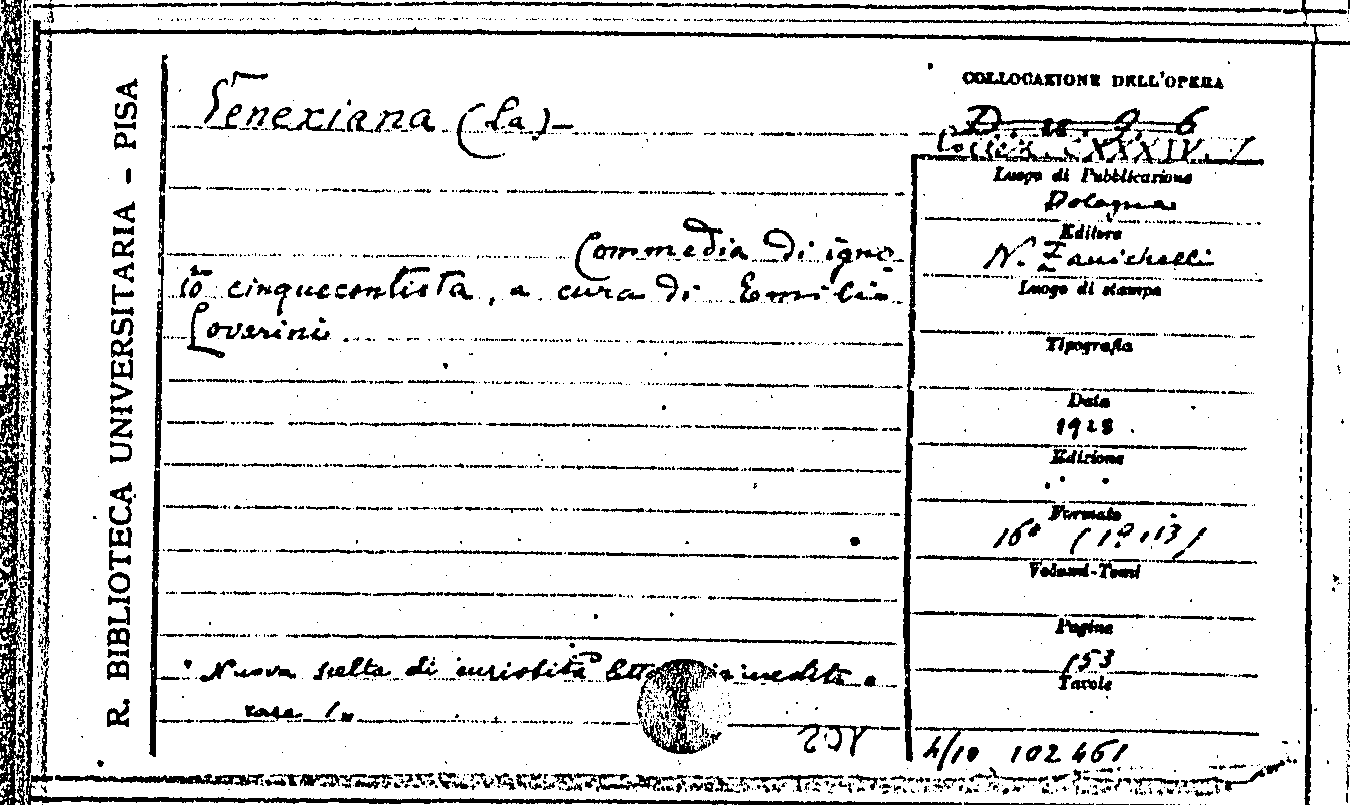 R. BIBLIOTECA UNIVERSITARIA - PISA
Venexiana (La) -
Commedia di igno
to cinquecentista, a cura di Emilio
Lovarini.
"Nuova scelta di curiosità inedite o
rare 1"
COLLOCAZIONE DELL'OPERA
D. u. 9. 6
CXXXIV. 1
Luogo di Pubblicazione
Bologna
Editore
N. Zanichelli
Luogo di stampa
Tipografia
Data
1928.
Edizione
Formato
16°
Volumi-Tomi
Pagine
153
Tavole
4/10 102461